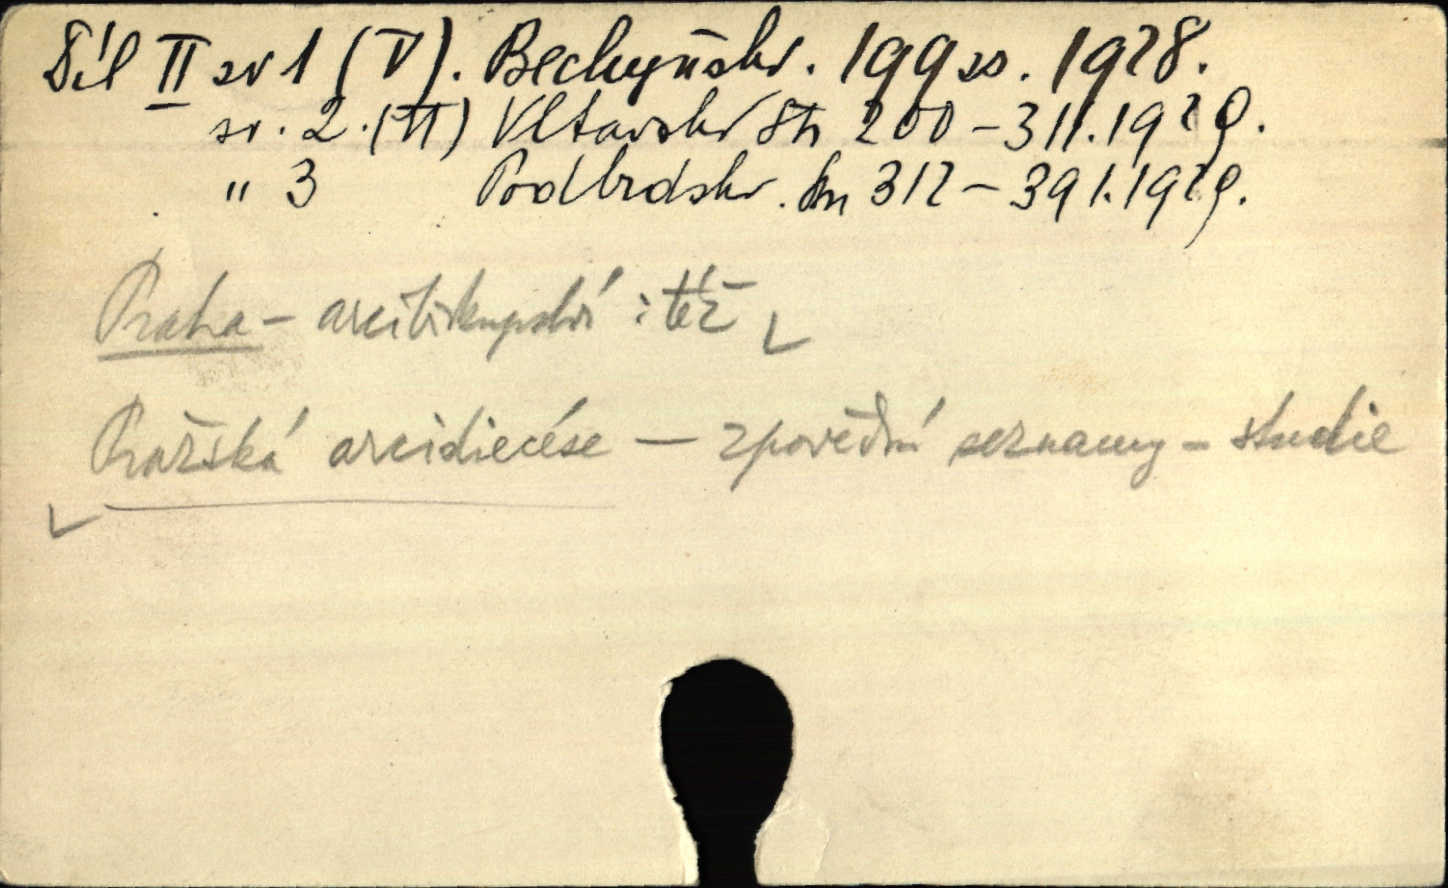 Díl II sv 1 (V). Bechyňskо. 199 ss. 1928.
sv. 2. (VI) Vltavsko Str 200-311. 1929.
" 3 Podbrdsko. Str 312-391. 1929.
Praha - arcibiskupství : též
Pražská arcidiecése - zpovědní seznamy - studie